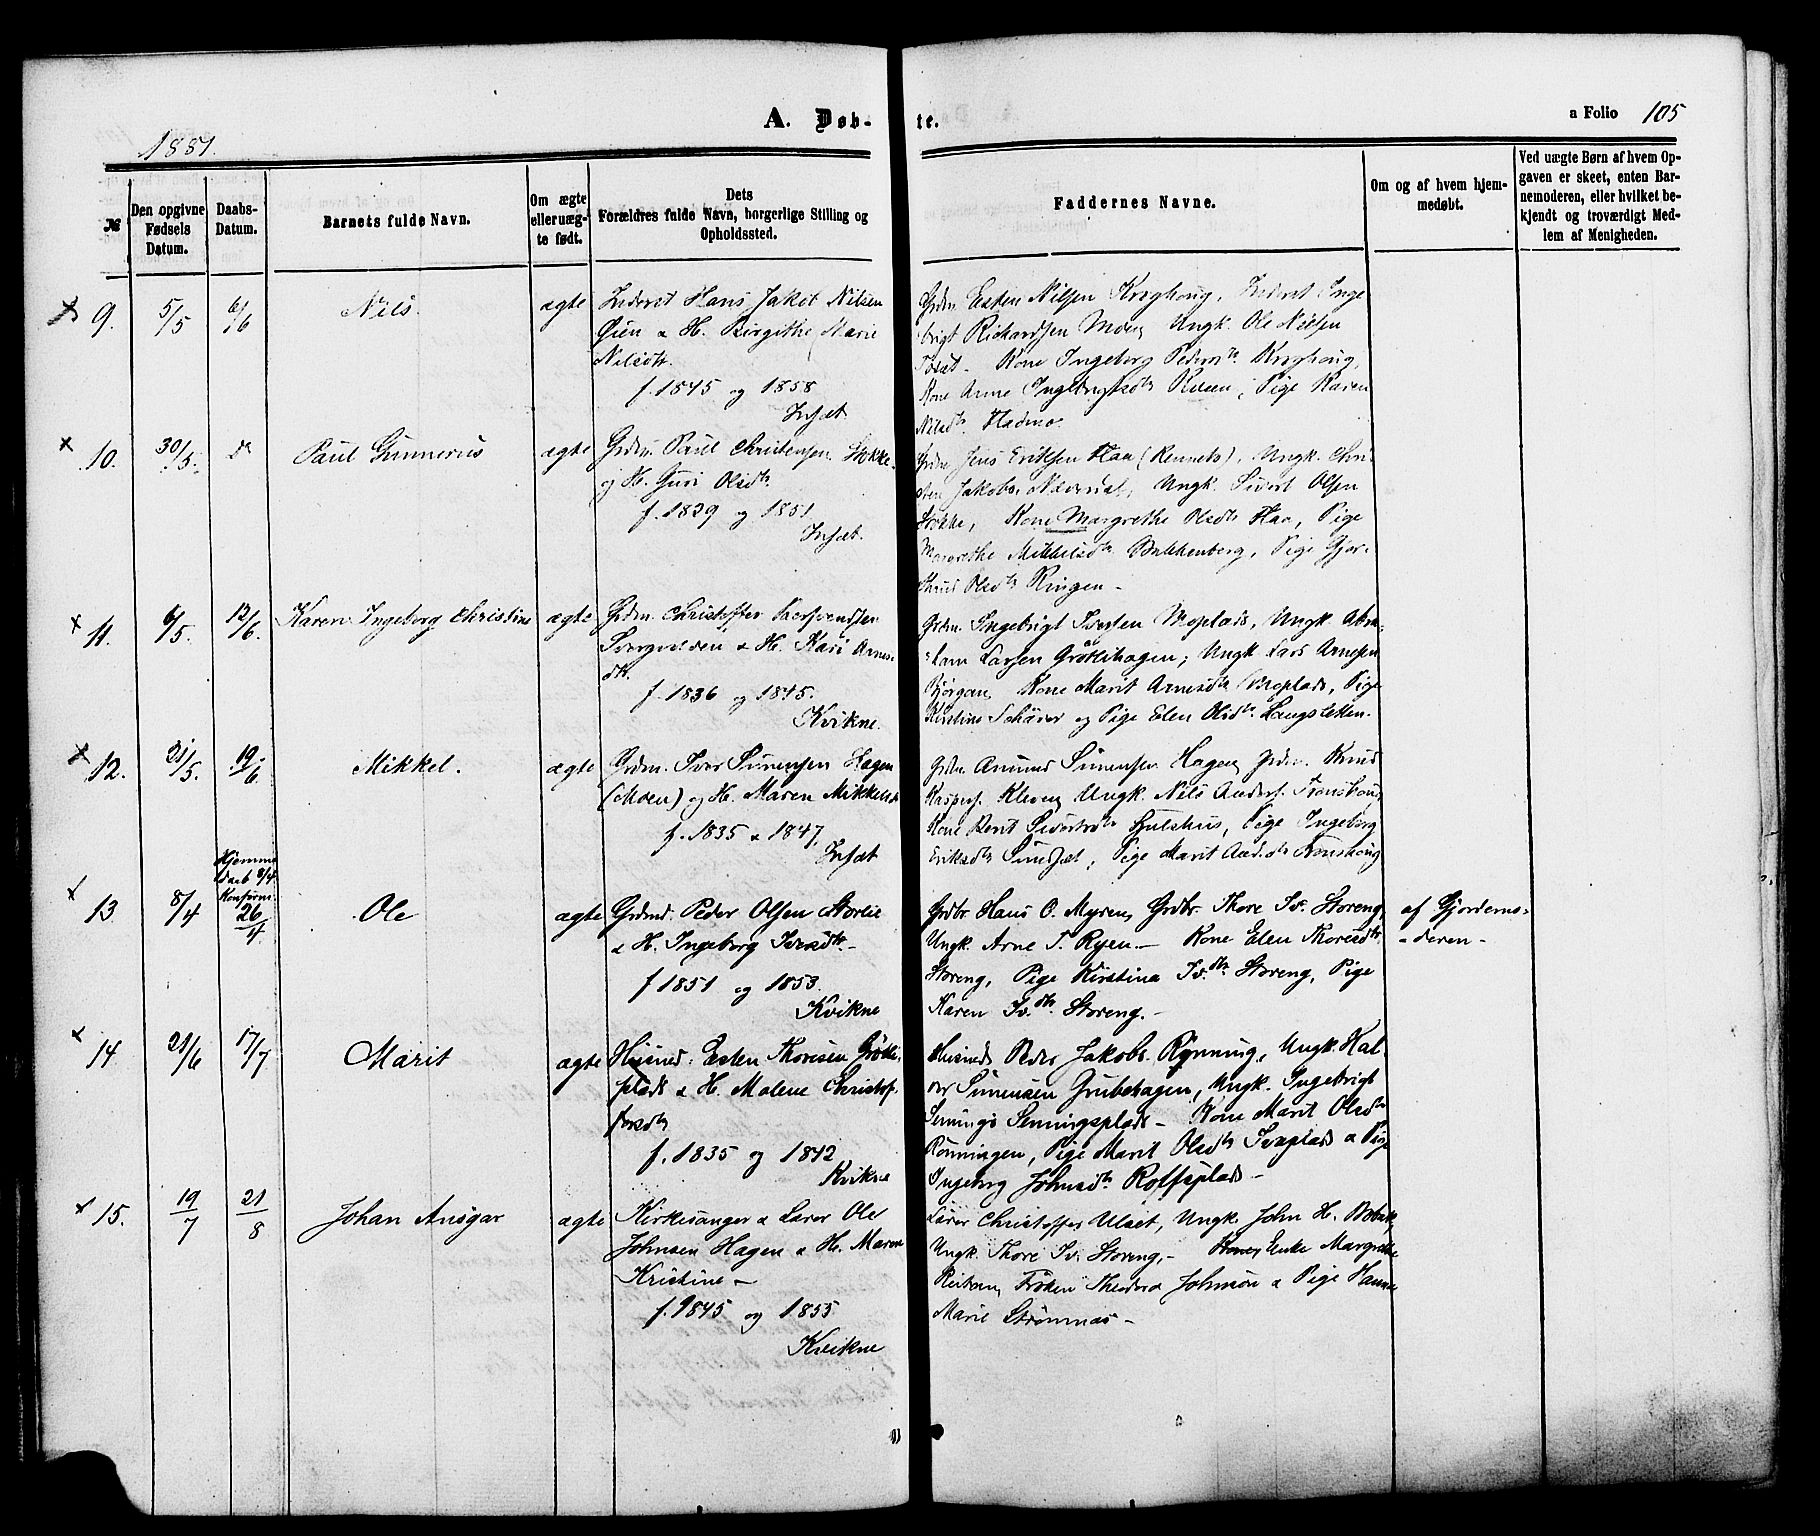 A. Døb-
te.
a Folio 105
1881.
№
Den opgivne
Fødsels
Datum.
Daabs-
Datum.
Barnets fulde Navn.
Om ægte
eller uæg-
te født.
Dets
Forældres fulde Navn, borgerlige Stilling og
Opholdssted.
Faddernes Navne.
Om og af hvem hjem-
medøbt.
Ved uægte Børn af hvem Op-
gaven er skeet, enten Bar-
nemoderen, eller hvilket be-
kjendt og troværdigt Med-
lem af Menigheden.
9.
5/5
6/6
Nils.
ægte
Inderst Hans Jakob Nilsen
Øien & H. Birgithe Marie
Nilsdtr.
f. 1845 og 1858
Insæt
Grdm. Esten Nilsen Inderst Inge
brigt Richardsen Moen, Ungk. Ole Nilsen
Kone Ingeborg Pedersdtr
Kone Arne Ingebrigtsdtr Pige Karen
Nilsdtr Fladmo.
10.
30/5.
do
Paul Gunnerius
ægte
Grdm. Paul Christensen Stokke
og H. Guri Olsdtr.
f. 1839 og 1851
Insæt.
Grdm Jens Eriksen Haa (Rennets), Ungk. Chri-
sten Jakobs. Næverdal, Ungk. Sivert Olsen
Stokke, Kone Margrethe Olsdtr Haa, Pige
Margrethe Mikkelsdtr Bakkenberg, Pige Gjer-
thrud Olsdtr Ringen -
11.
6/5.
12/6.
Karen Ingeborg Christine
ægte
Grdm. Christoffer
& H. Kari Arnes-
dtr.
f. 1836 og 1845.
Kvikne.
Grdm. Ingebrigt Moplads, Ungk. Abra-
ham Larsen Grøtlihagen; Ungk Lars Arnesen
Bjørgan, Kone Marit Arnesdtr Moplads, Pige
Kirstine og Pige Elen Olsdtr. Langsletten.
12.
21/5.
19/6
Mikkel.
ægte
Grdm. Iver Simensen Hagen
(Moen) og H. Maren Mikkelsd
f. 1835 & 1847,
Insæt
Grdm. Amund Simensen Hagen, Grdm. Knud
Kaspers. Kleven, Ungk. Nils Anders. Frenshoug
Kone Berit Sivertsdtr Hulshus, Pige Ingeborg
Eriksdtr Pige Marit Andersdtr Frenshoug
13
8/4
Hjemme
daab 8/4
Konfirm.
26/4.
Ole
ægte
Grdmd. Peder Olsen Storlie
& H. Ingeborg Iversdtr. -
f 1851 og 1853.
Kvikne
Grdbr. Hans O. Myren, Grdbr. Thore Iv. Storeng,
Ungk. Arne T. Ryen. - Kone Elen Thoresdtr.
Storeng, Pige Kirstina Iv.dtr. Storeng, Pige
Karen Iv.dtr. Storeng. -
af Gjordemo-
-deren -
14.
21/6
17/7
Marit
ægte
Husmd. Esten Thoresen Grøtli
plads & H. Malene Christof-
fersdtr
f. 1835 og 1842
Kvikne
Husmd Peder Jakobs. Rønning, Ungk. Hal-
vor Simensen Grubehagen, Ungk. Ingebrigt
Sennings Senningsplads - Kone Marit Olsdtr
Rønningen, Pige Marit Olsdtr Iveplads & Pige
Ingeborg Johnsdtr Rolfsplads -
15.
19/7
21/8
Johan Ansgar
ægte
Kirkesanger & Lærer Ole
Johnsen Hagen & H. Maren
Kristine -
f. 1845 og 1855
Kvikne
Lærer Christoffer Ulset, Ungk. John H. Bobak,
Ungk. Thore Iv. Storeng, - Enke Margrethe
Reitan, Frøken Theodora Johnson & Pige Hanna
Marie Strømnæs -